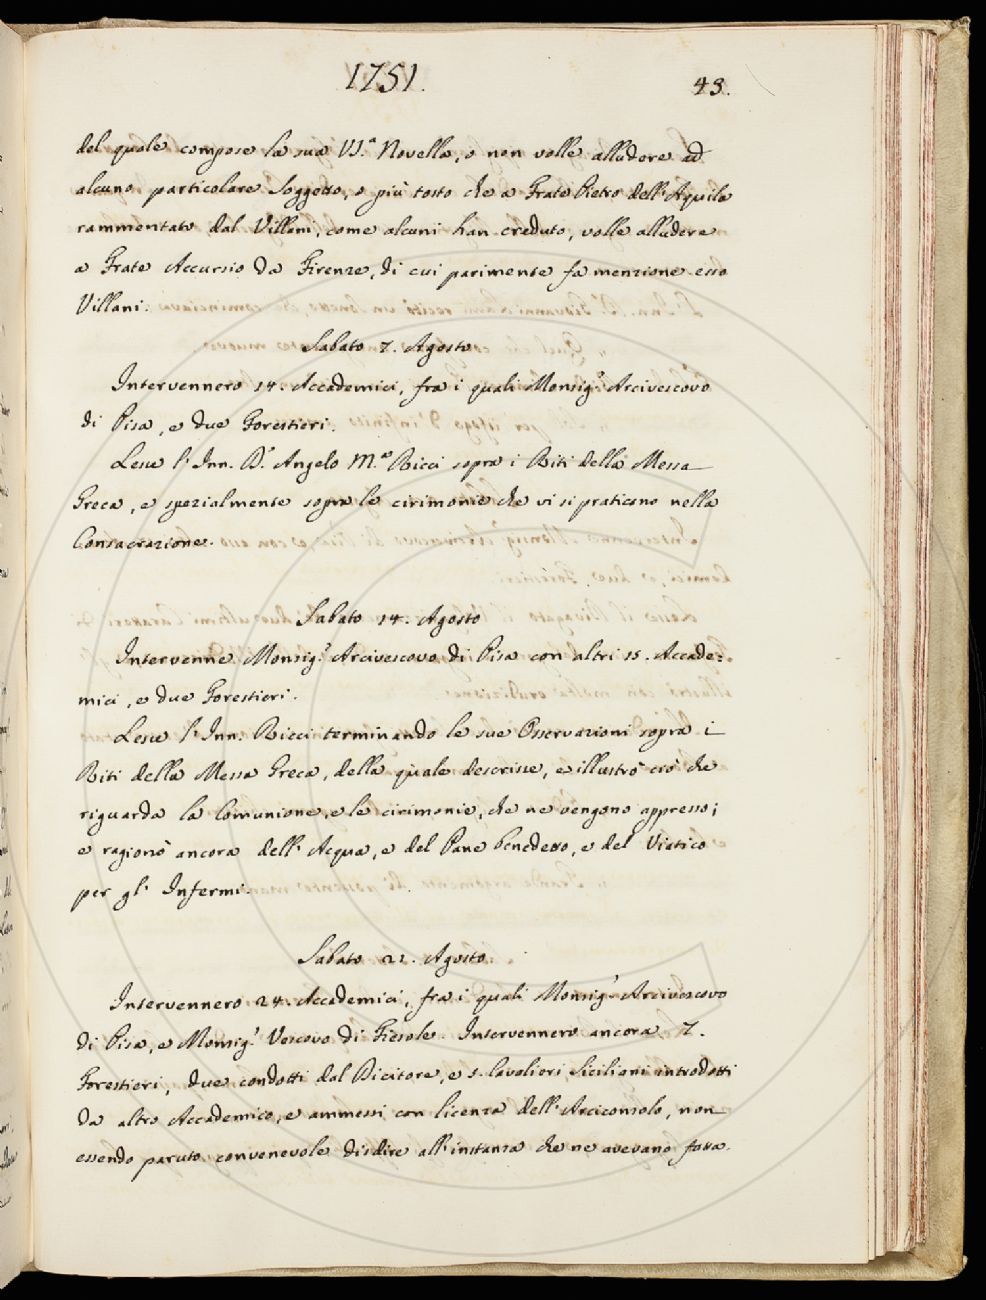 1751.
43.
del quale compose la sua VI.ª Novella, o non volle alludere ad
alcuno particolare Soggetto, o più tosto che a Frate Pietro dell'Aquila
rammentato dal Villani, come alcuni han creduto, volle alludere
a Frate Accursio da Firenze, di cui parimente fa menzione esso
Villani.
Sabato 7. Agosto
Intervennero 14. Accademici, fra i quali Monsig.r Arcivescovo
di Pisa, e due Forestieri.
Lesse l'Inn. D.r Angelo M.ª Ricci sopra i Riti della Messa
Greca, e spezialmente sopra le cirimonie che vi si praticano nella
Consacrazione.
Sabato 14. Agosto
Intervenne Monsig.r Arcivescovo di Pisa con altri 15. Accade=
mici, e due Forestieri.
Lesse l'Inn. Ricci terminando le sue Osservazioni sopra i
Riti della Messa Greca, della quale descrisse, e illustrò ciò che
riguarda la Comunione, e le cirimonie, che ne vengono appresso;
e ragionò ancora dell'Acqua, e del Pane benedetto, e del Viatico
per gl'Infermi.
Sabato 21. Agosto.
Intervennero 24. Accademici, fra i quali Monsig.r Arcivescovo
di Pisa, e Monsig.r Vescovo di Fiesole. Intervennero ancora 7.
Forestieri, due condotti dal Dicitore, e 5. Cavalieri Siciliani introdotti
da altro Accademico, e ammessi con licenza dell'Arciconsolo, non
essendo paruto convenevole disdire all'instanza che ne avevano fatta.